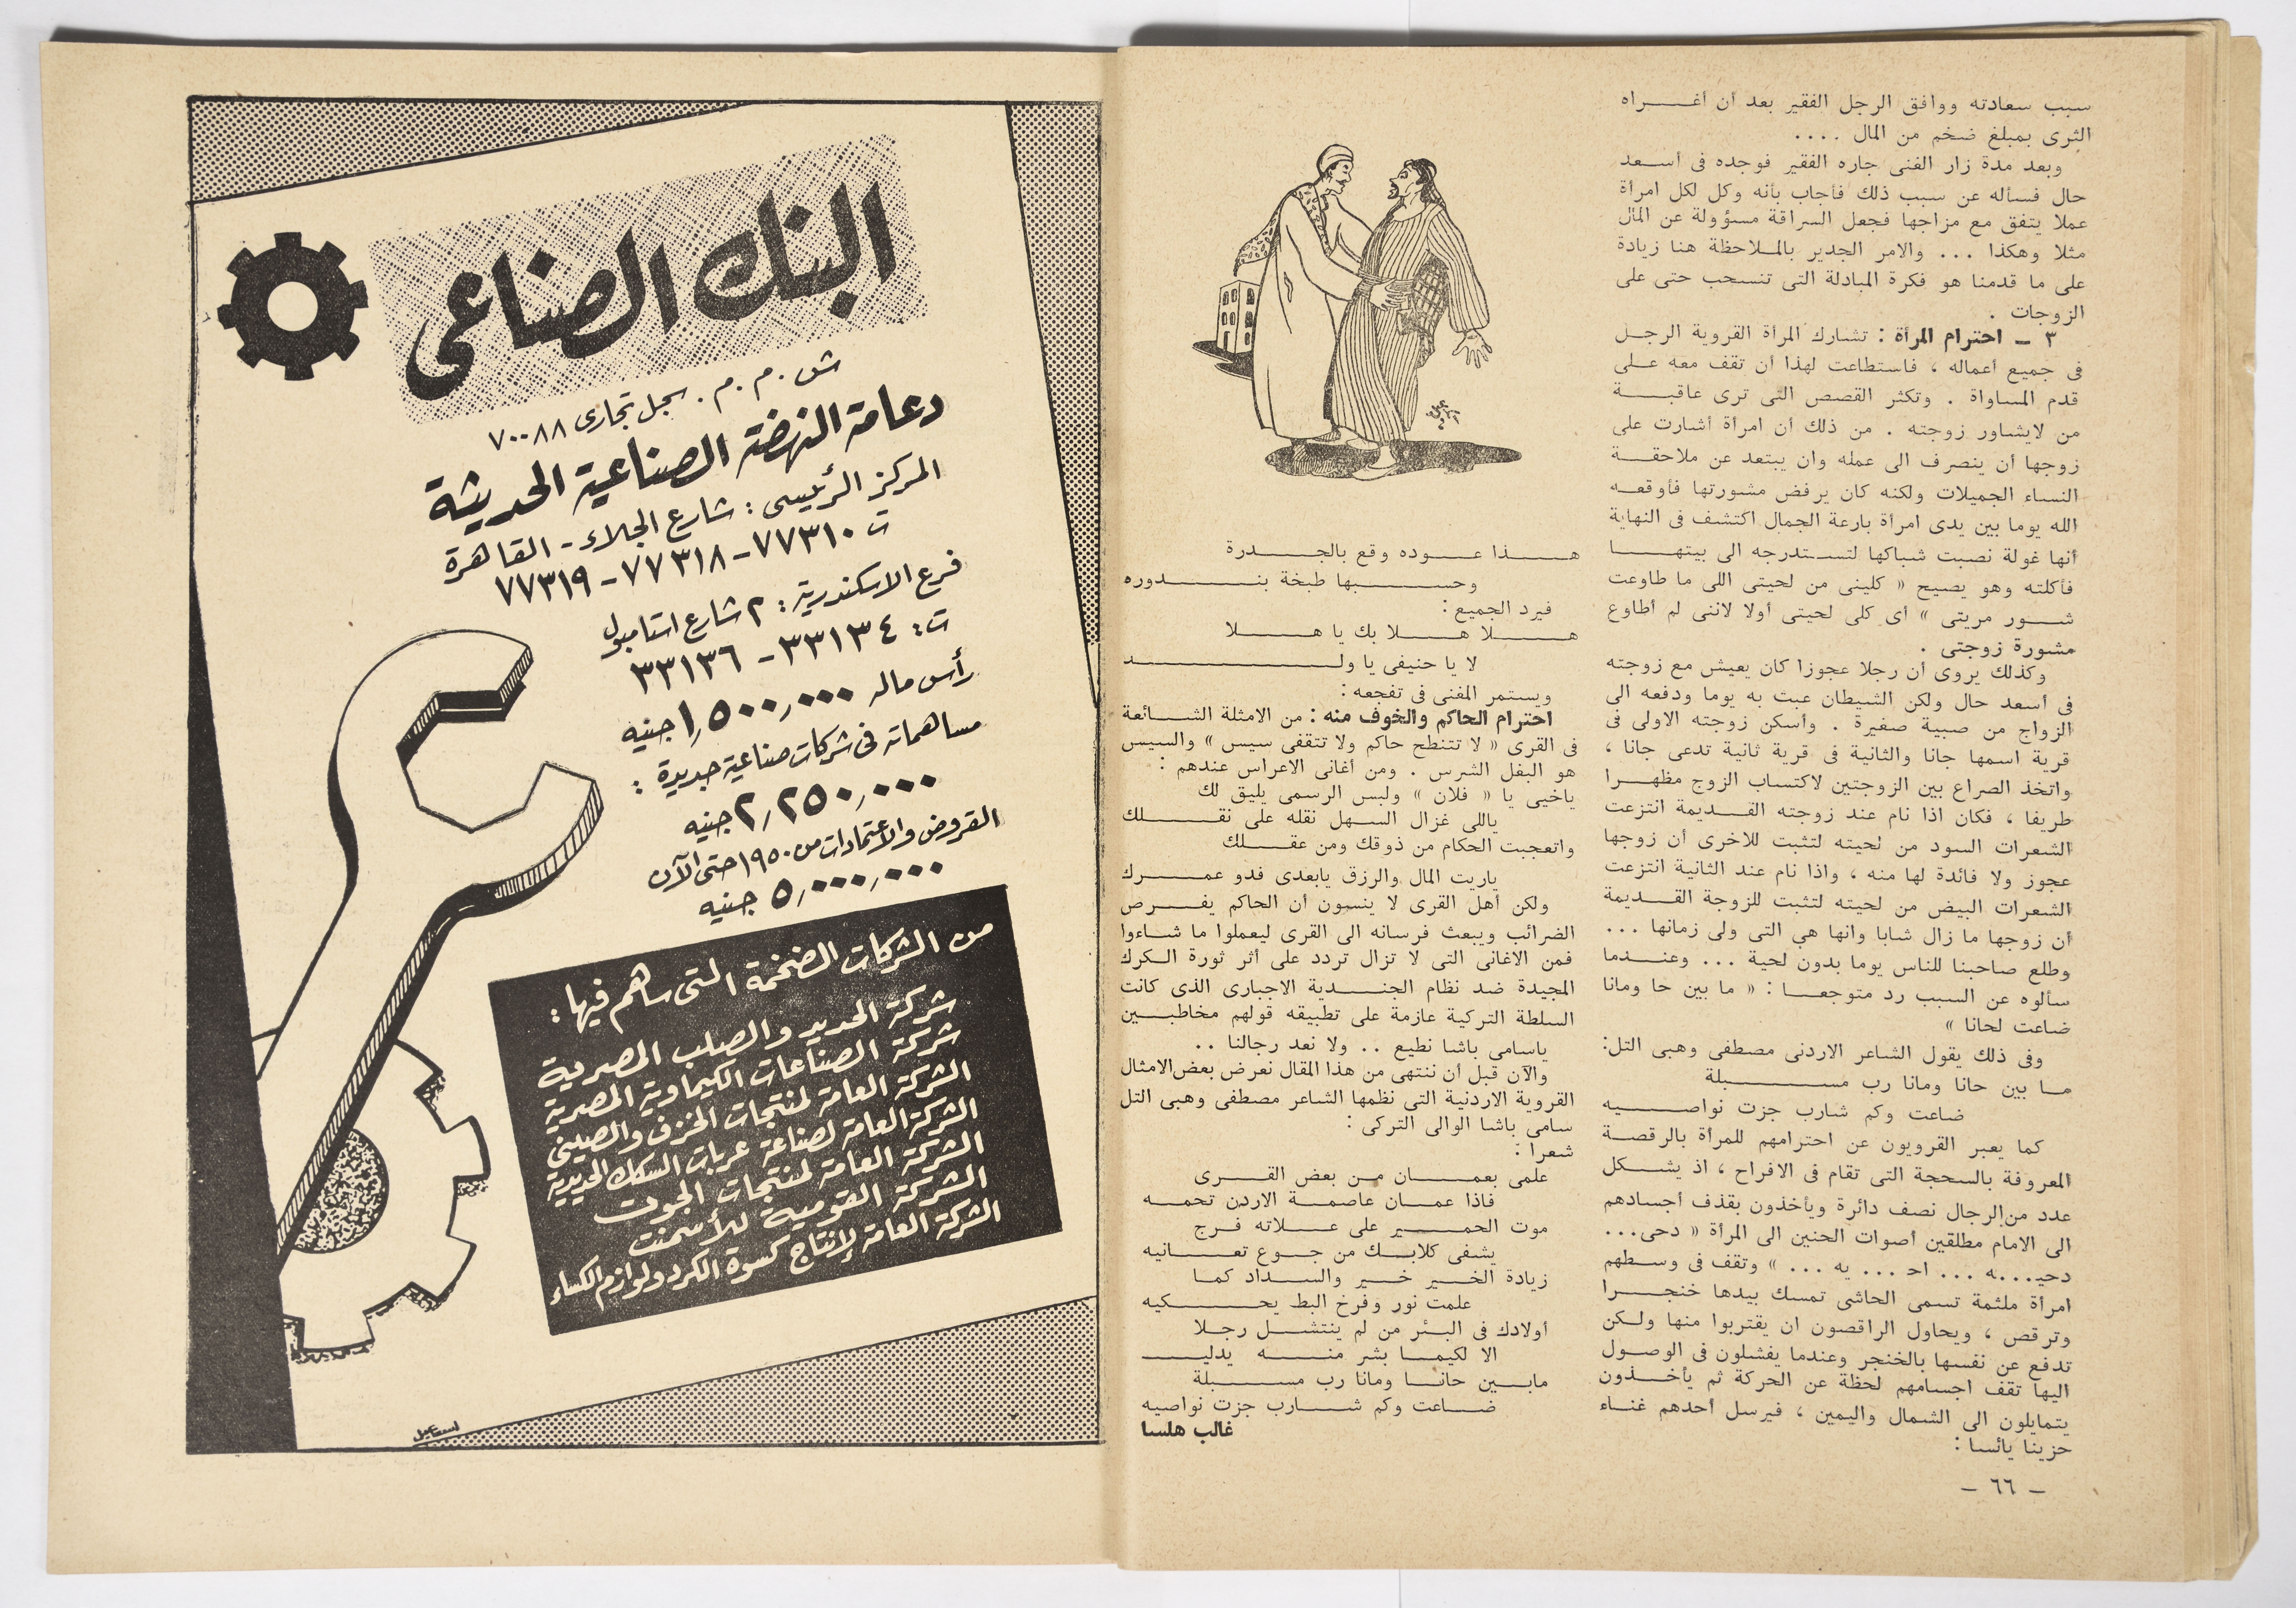 سبب سعادته ووافق الرجل الفقير بعد أن أغراه
الثرى بمبلغ ضخم من المال ....
وبعد مدة زار الغنى جاره الفقير فوجده فى أسعد
حال فسأله عن سبب ذلك فأجاب بأنه وكل لكل امرأة
عملا يتفق مع مزاجها فجعل السراقة مسؤولة عن المال
مثلا وهكذا ... والامر الجدير بالملاحظة هنا زيادة
على ما قدمنا هو فكرة المبادلة التى تنسحب حتى على
الزوجات .
٣ ـ احترام المرأة : تشارك المرأة القروية الرجل
فى جميع أعماله ، فاستطاعت لهذا أن تقف معه على
قدم المساواة . وتكثر القصص التى ترى عاقبة
من لايشاور زوجته . من ذلك أن امرأة أشارت على
زوجها أن ينصرف الى عمله وان يبتعد عن ملاحقة
النساء الجميلات ولكنه كان يرفض مشورتها فأوقعه
الله يوما بين يدى امرأة بارعة الجمال اكتشف فى النهاية
أنها غولة نصبت شباكها لتستدرجه الى بيتها
فأكلته وهو يصيح « كلينى من لحيتى اللى ما طاوعت
شور مريتى » أى كلى لحيتى أولا لاننى لم أطاوع
مشورة زوجتى .
وكذلك يروى أن رجلا عجوزا كان يعيش مع زوجته
فى أسعد حال ولكن الشيطان عبث به يوما ودفعه الى
الزواج من صبية صغيرة . وأسكن زوجته الاولى فى
قرية اسمها جانا والثانية فى قرية ثانية تدعى جانا ،
واتخذ الصراع بين الزوجتين لاكتساب الزوج مظهرا
طريفا ، فكان اذا نام عند زوجته القديمة انتزعت
الشعرات السود من لحيته لتثبت للاخرى أن زوجها
عجوز ولا فائدة لها منه ، واذا نام عند الثانية انتزعت
الشعرات البيض من لحيته لتثبت للزوجة القديمة
أن زوجها ما زال شابا وانها هي التى ولى زمانها ...
وطلع صاحبنا للناس يوما بدون لحية ... وعندما
سألوه عن السبب رد متوجعا : « ما بين حا ومانا
ضاعت لحانا »
وفى ذلك يقول الشاعر الاردنى مصطفى وهبى التل:
ما بين حانا ومانا رب مسبلة
ضاعت وكم شارب جزت نواصيه
كما يعبر القرويون عن احترامهم للمرأة بالرقصة
المعروفة بالسحجة التى تقام فى الافراح ، اذ يشكل
عدد من الرجال نصف دائرة ويأخذون بقذف أجسادهم
الى الامام مطلقين أصوات الحنين الى المرأة « دحى...
دحيه... اح ... يه ... » وتقف فى وسطهم
امرأة ملثمة تسمى الحاشى تمسك بيدها خنجرا
وترقص ، ويحاول الراقصون ان يقتربوا منها ولكن
تدفع عن نفسها بالخنجر وعندما يفشلون فى الوصول
اليها تقف اجسامهم لحظة عن الحركة ثم يأخذون
يتمايلون الى الشمال واليمين ، فيرسل أحدهم غناء
حزينا يائسا :
ـ ٦٦ ـ
هذا عوده وقع بالجدرة
وحسبها طبخة بندوره
فيرد الجميع :
هلا هلا بك يا هلا
لا يا حنيفى يا ولد
ويستمر المغنى فى تفجعه :
احترام الحاكم والخوف منه : من الامثلة الشائعة
فى القرى « لا تتنطح حاكم ولا تتقفى سيس » والسيس
هو البغل الشرس . ومن أغانى الاعراس عندهم :
ياخيى يا « فلان » ولبس الرسمى يليق لك
ياللى غزال السهل نقله على نقلك
واتعجبت الحكام من ذوقك ومن عقلك
ياريت المال والرزق يابعدى فدو عمرك
ولكن أهل القرى لا ينسون أن الحاكم يفرض
الضرائب ويبعث فرسانه الى القرى ليعملوا ما شاءوا
فمن الاغانى التى لا تزال تردد على أثر ثورة الكرك
المجيدة ضد نظام الجندية الاجبارى الذى كانت
السلطة التركية عازمة على تطبيقه قولهم مخاطبين
ياسامى باشا نطيع .. ولا نعد رجالنا ..
والآن قبل أن ننتهى من هذا المقال نعرض بعض الامثال
القروية الاردنية التى نظمها الشاعر مصطفى وهبى التل
سامى باشا الوالى التركى :
شعرا :
علمى بعمان من بعض القرى
فاذا عمان عاصمة الاردن تحمه
موت الحمير على علاته فرج
يشفى كلابك من جوع تعانيه
زيادة الخير خير والسداد كما
علمت نور وفرخ البط يحكيه
أولادك فى البئر من لم ينتشل رجلا
الا لكيما بشر منه يدليه
مابين حانا ومانا رب مسبلة
ضاعت وكم شارب جزت نواصيه
غالب هلسا
البنك الصناعى
ش.م.م. سجل تجارى ٧٠٠٨٨
دعامة النهضة الصناعية الحديثة
المركز الرئيسى : شارع الجلاء - القاهرة
ت ٧٧٣١٠ - ٧٧٣١٨ - ٧٧٣١٩
فرع الاسكندرية : ٢ شارع استامبول
ت : ٣٣١٣٤ - ٣٣١٣٦
رأس ماله ١,٥٠٠,٠٠٠ جنيه
مساهماته فى شركات صناعية جديدة :
٢,٢٥٠,٠٠٠ جنيه
القروض والاعتمادات من ١٩٥٠ حتى الآن
٥,٠٠٠,٠٠٠ جنيه
من الشركات الضخمة التى ساهم فيها :
شركة الحديد والصلب المصرية
شركة الصناعات الكيماوية المصرية
الشركة العامة لمنتجات الخزف والصينى
الشركة العامة لصناعة عربات السكك الحديدية
الشركة العامة لمنتجات الجوت
الشركة القومية للأسمنت
الشركة العامة لإنتاج كسوة الكرد ولوازم الكساء
اسماعيل